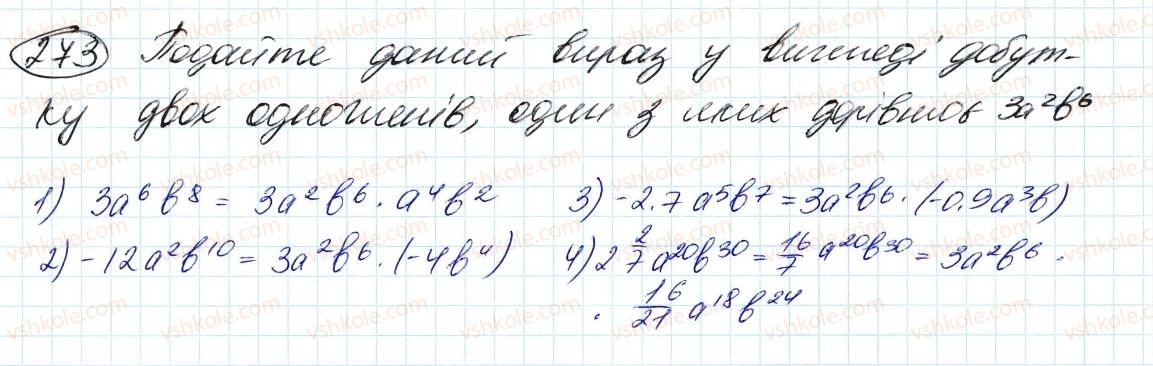 273 Подайте даний вираз у вигляді добут-
ку двох одночленів, один з яких дорівнює 3a²b⁶
1) 3a⁶b⁸ = 3a²b⁶ · a⁴b² 3) -2.7a⁵b⁷ = 3a²b⁶ · (-0.9a³b)
2) -12a²b¹⁰ = 3a²b⁶ · (-4b⁴) 4) 2 2/7 a²⁰b³⁰ = 16/7 a²⁰b³⁰ = 3a²b⁶ ·
· 16/21 a¹⁸b²⁴